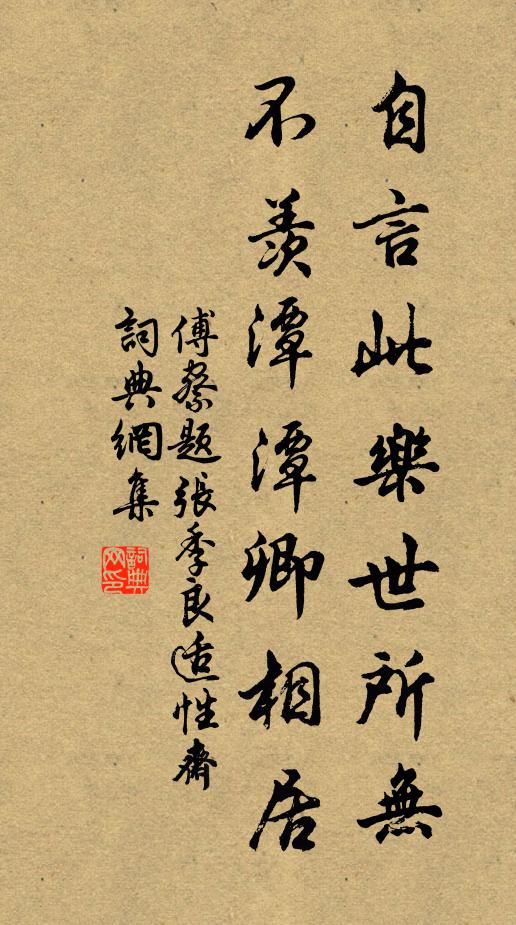 自言此樂世所無
不羨潭潭卿相居
傅察題張季良适性齋
詞典網集
詞典網印